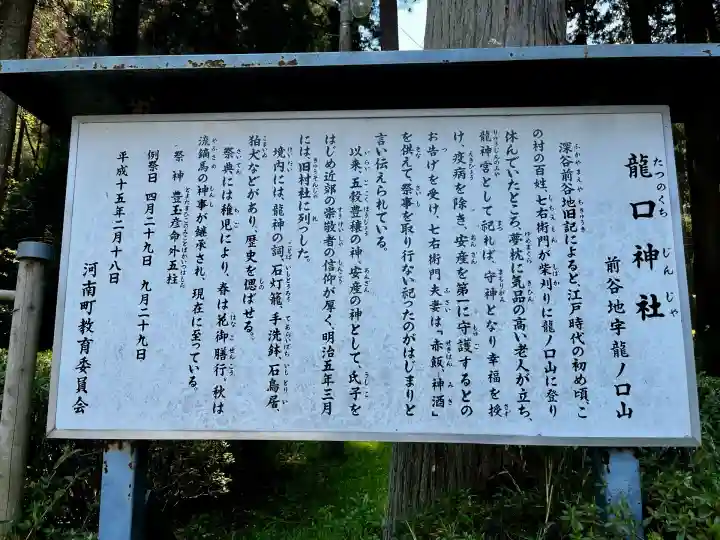 龍口神社
たつのくちじんじゃ
前谷地字龍ノ口山
深谷前谷地旧記によると、江戸時代の初め頃、こ
の村の百姓、七右衛門が柴刈りに龍ノ口山に登り
休んでいたところ、夢枕に気品の高い老人が立ち、
龍神宮として祀れば、守神となり幸福を授
け、疫病を除き、安産を第一に守護するとの
お告げを受け、七右衛門夫妻は「赤飯、神酒」
を供えて、祭事を取り行ない祀ったのがはじまりと
言い伝えられている。
以来、五穀豊穣の神、安産の神として、氏子を
はじめ近郊の崇敬者の信仰が厚く、明治五年三月
には、旧村社に列つした。
境内には、龍神の祠、石灯籠、手洗鉢、石鳥居、
狛犬などがあり、歴史を偲ばせる。
祭典には稚児により、春は花御膳行、秋は
流鏑馬の神事が継承され、現在に至っている。
祭神 豊玉彦命外五柱
例祭日 四月二十九日 九月二十九日
平成十五年二月十八日
河南町教育委員会